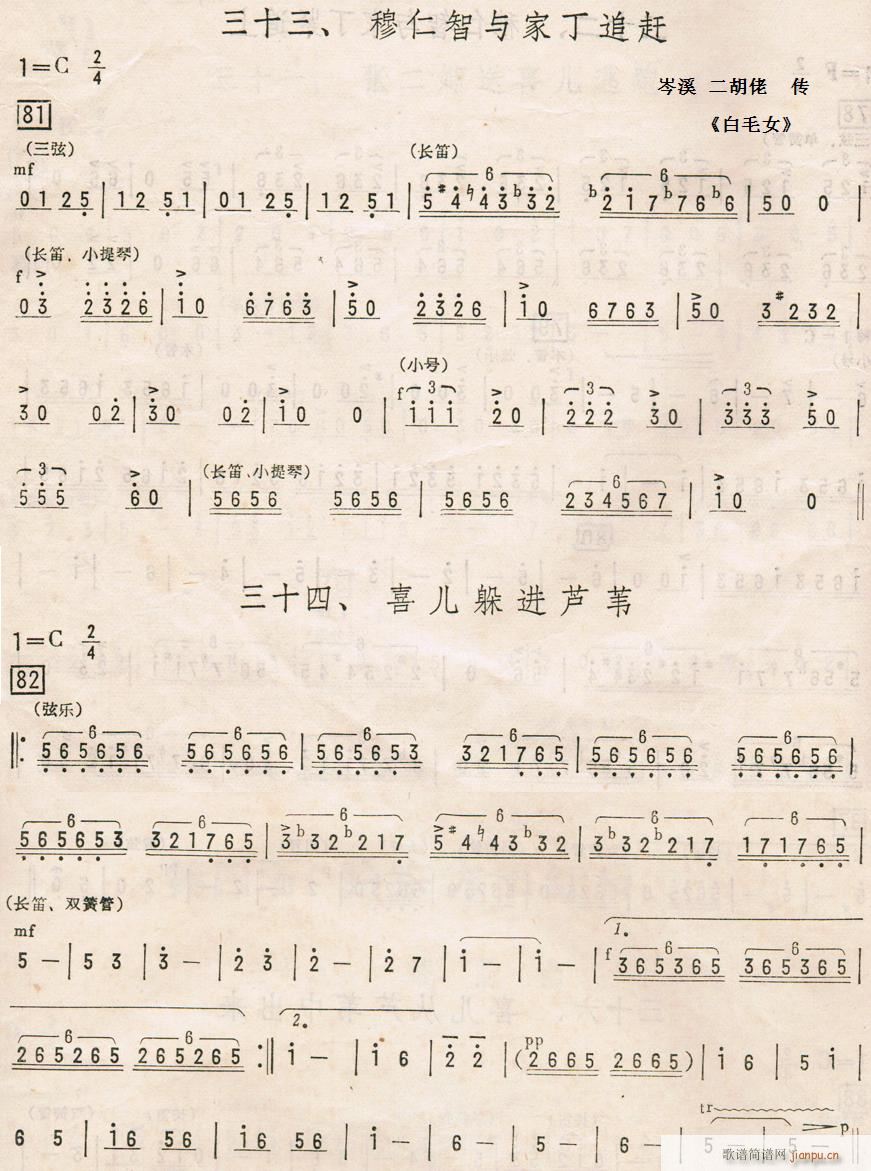 三十三、穆仁智与家丁追赶
1=C 2/4
岑溪 二胡佬 传
《白毛女》
81
(三弦) (长笛)
mf
0125 | 12 51 | 01 25 | 12 51 | 5#4♮43♭32 ♭217♭76♭6 | 50 0 |
(长笛、小提琴)
f
03 2326 | i0 6763 | 50 2326 | i0 6763 | 50 3#232
(小号)
30 02 | 30 02 | i0 0 | f iii 20 | 222 30 | 333 50
(长笛、小提琴)
555 60 | 5656 5656 | 5656 234567 | i0 0 ‖
三十四、喜儿躲进芦苇
1=C 2/4
82
(弦乐)
‖: 565656 565656 | 565653 321765 | 565656 565656 |
565653 321765 | 3♭32♭217 5#4♮43♭32 | 3♭32♭217 171765 |
(长笛、双簧管)
mf 1.
5 – | 5 3 | 3 – | 2 3 | 2 – | 2 7 | i – | i – | f 365365 365365 |
2.
265265 265265 :‖ i – | i 6 | 2 2 | pp (2665 2665) | i 6 | 5 i |
tr p
6 5 | i6 56 | i6 56 | i – | 6 – | 5 – | 6 – | 5 – | 5 – ‖
歌谱简谱网
jianpu.cn